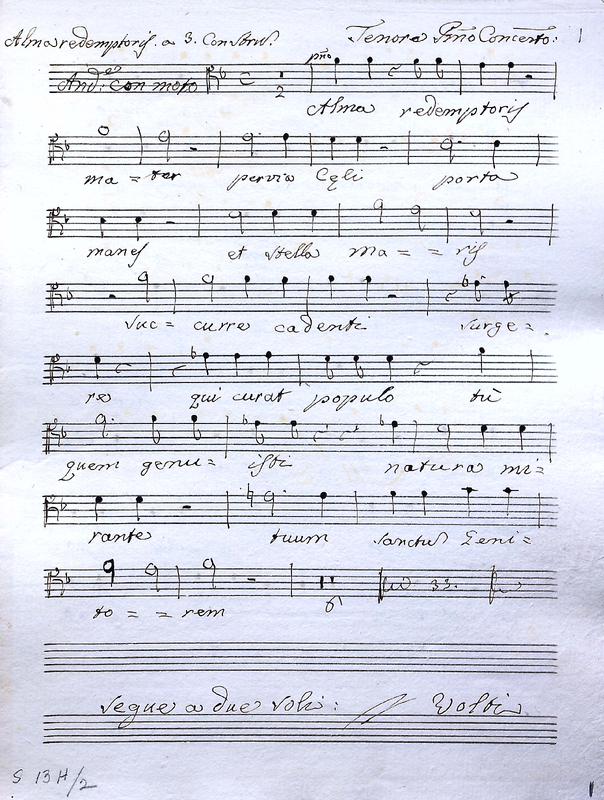 Alma redemptoris. a 3. Con Strui. Tenore Pmo Concerto: 1
And:e Con moto 2 pmo
Alma redemptoris
ma = ter pervia Cęli porta
manes et stella ma = = ris
suc = curre cadenti surge =
re qui curat populo tù
quem genu = isti natura mi =
rante tuum sanctum Geni =
to = = rem 6 33.
segue a due Soli: Volti
S 13 H/2